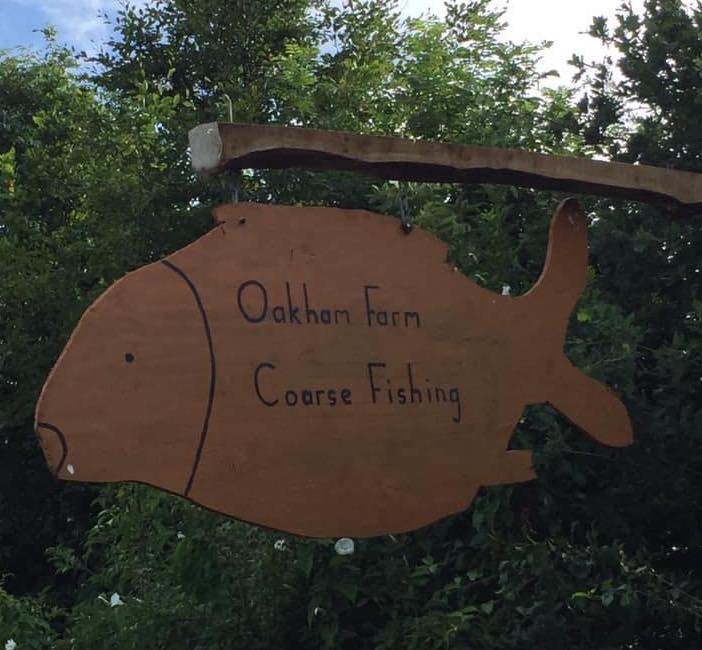 Oakham Farm
Coarse Fishing